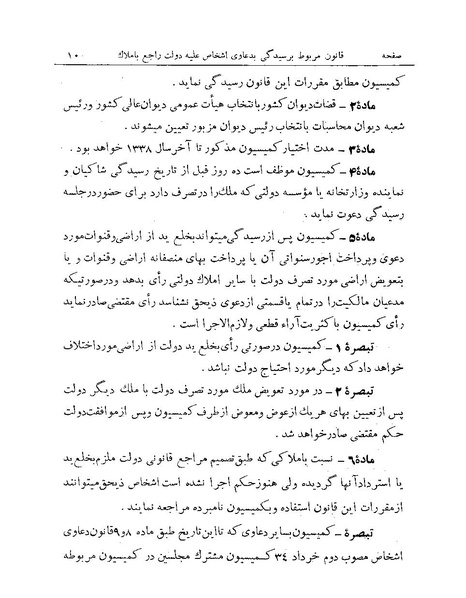 صفحه قانون مربوط برسیدگی بدعاوی اشخاص علیه دولت راجع باملاك ۱۰
کمیسیون مطابق مقررات این قانون رسیدگی نماید .
مادۀ۲ – قضات‌دیوان کشور بانتخاب هیأت عمومی دیوان‌عالی کشور و رئیس
شعبه دیوان محاسبات بانتخاب رئیس دیوان مزبور تعیین میشوند .
مادۀ۳ – مدت اختیار کمیسیون مذکور تا آخر سال ۱۳۳۸ خواهد بود .
مادۀ۴ – کمیسیون موظف است ده روز قبل از تاریخ رسیدگی شاکیان و
نماینده وزارتخانه یا مؤسسه دولتی که ملك را در تصرف دارد برای حضور در جلسه
رسیدگی دعوت نماید .
مادۀ۵ – کمیسیون پس از رسیدگی میتواند بخلع ید از اراضی و قنوات مورد
دعوی و پرداخت اجور سنواتی آن یا پرداخت بهای منصفانه اراضی و قنوات و یا
بتعویض اراضی مورد تصرف دولت با سایر املاك دولتی رأی بدهد و در صورتیکه
مدعیان مالکیت را در تمام یا قسمتی از دعوی ذیحق نشناسد رأی مقتضی صادر نماید
رأی کمیسیون با کثریت آراء قطعی و لازم‌الاجرا است .
تبصرۀ ۱ – کمیسیون در صورتی رأی بخلع ید دولت از اراضی مورد اختلاف
خواهد داد که دیگر مورد احتیاج دولت نباشد .
تبصرۀ ۲ – در مورد تعویض ملك مورد تصرف دولت با ملك دیگر دولت
پس از تعیین بهای هر یك از عوض و معوض از طرف کمیسیون و پس از موافقت دولت
حکم مقتضی صادر خواهد شد .
مادۀ۶ – نسبت باملاکی که طبق تصمیم مراجع قانونی دولت ملزم بخلع ید
یا استرداد آنها گردیده ولی هنوز حکم اجرا نشده است اشخاص ذیحق میتوانند
از مقررات این قانون استفاده و بکمیسیون نامبرده مراجعه نمایند .
تبصرۀ – کمیسیون بسایر دعاوی که تا این تاریخ طبق ماده ۸ و ۹ قانون دعاوی
اشخاص مصوب دوم خرداد ۳۴ کمیسیون مشترك مجلسین در کمیسیون مربوطه